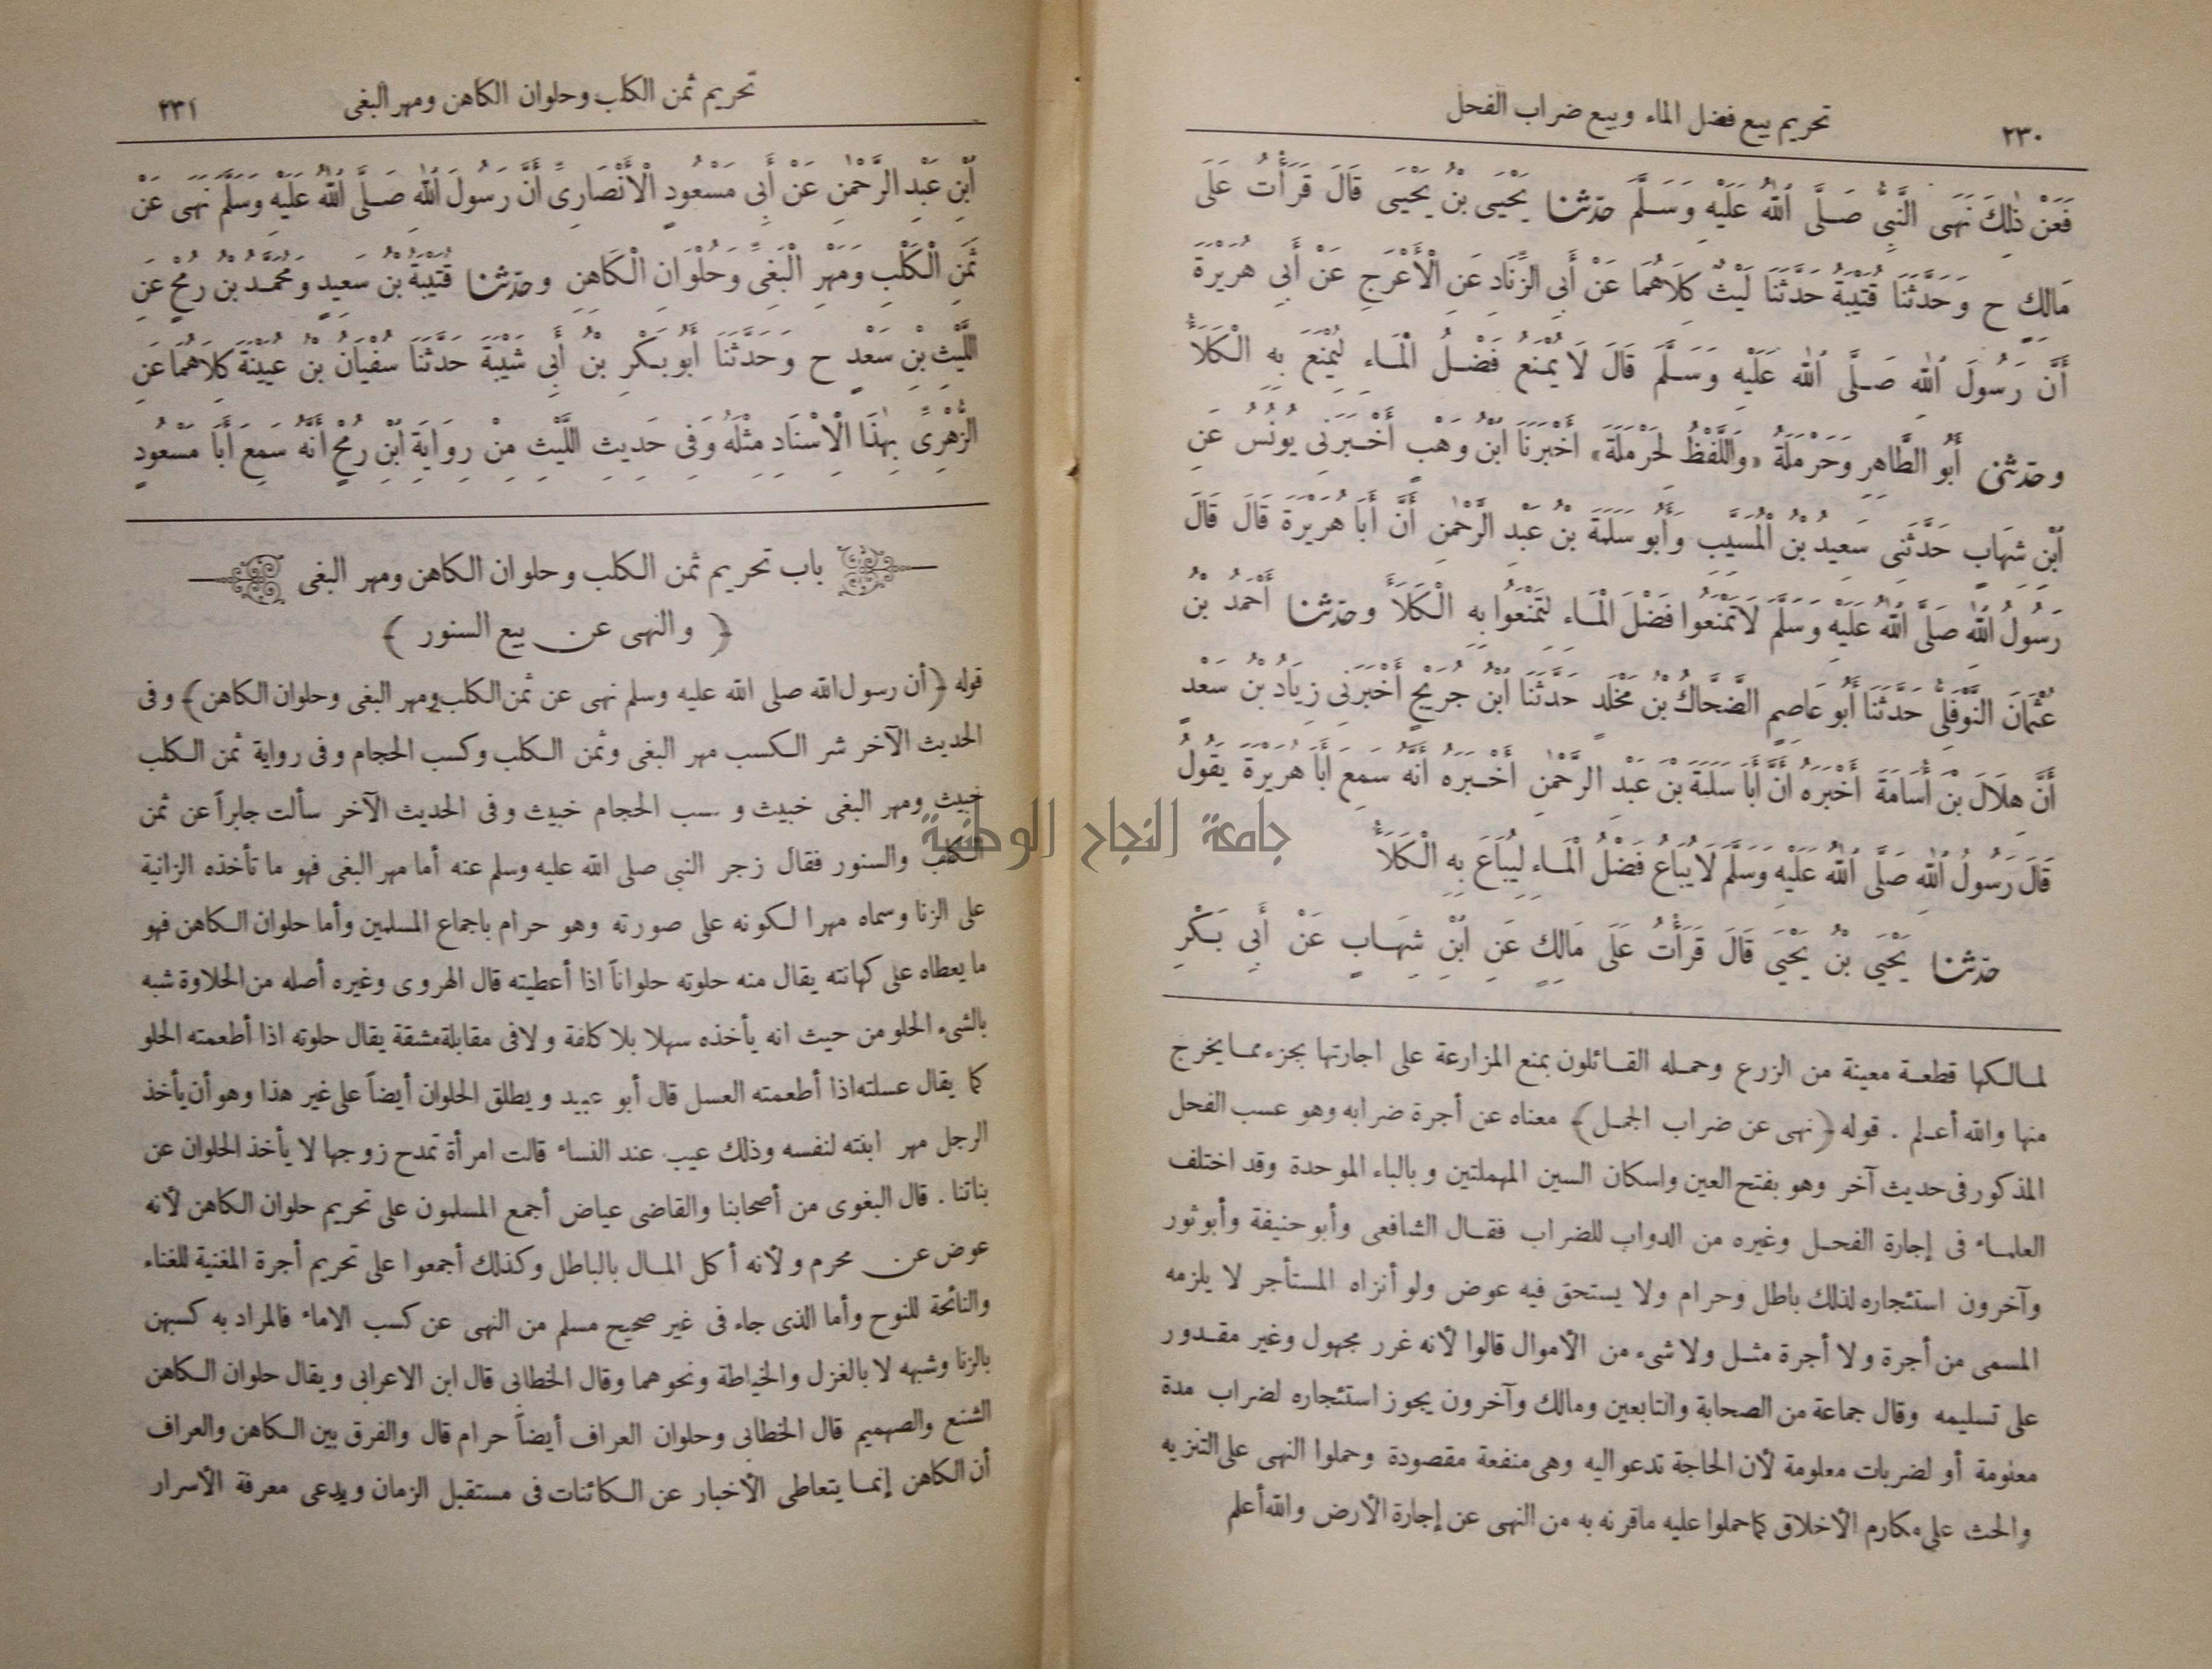 ٢٣٠ تحريم بيع فضل الماء وبيع ضراب الفحل
فَعَنْ ذٰلِكَ نَهَى النَّبِىُّ صَلَّى اللهُ عَلَيْهِ وَسَلَّمَ حدثنا يَحْيَى بْنُ يَحْيَى قَالَ قَرَأْتُ عَلَى
مَالِكٍ ح وَحَدَّثَنَا قُتَيْبَةُ حَدَّثَنَا لَيْثٌ كِلَاهُمَا عَنْ أَبِى الزِّنَادِ عَنِ الْأَعْرَجِ عَنْ أَبِى هُرَيْرَةَ
أَنَّ رَسُولَ اللهِ صَلَّى اللهُ عَلَيْهِ وَسَلَّمَ قَالَ لَا يُمْنَعُ فَضْلُ الْمَاءِ لِيُمْنَعَ بِهِ الْكَلَأُ
وحدثنى أَبُو الطَّاهِرِ وَحَرْمَلَةُ «وَاللَّفْظُ لِحَرْمَلَةَ» أَخْبَرَنَا ابْنُ وَهْبٍ أَخْبَرَنِى يُونُسُ عَنِ
ابْنِ شِهَابٍ حَدَّثَنِى سَعِيدُ بْنُ الْمُسَيَّبِ وَأَبُو سَلَمَةَ بْنُ عَبْدِ الرَّحْمٰنِ أَنَّ أَبَا هُرَيْرَةَ قَالَ قَالَ
رَسُولُ اللهِ صَلَّى اللهُ عَلَيْهِ وَسَلَّمَ لَا تَمْنَعُوا فَضْلَ الْمَاءِ لِتَمْنَعُوا بِهِ الْكَلَأَ وحدثنا أَحْمَدُ بْنُ
عُثْمَانَ النَّوْفَلِىُّ حَدَّثَنَا أَبُو عَاصِمٍ الضَّحَّاكُ بْنُ مَخْلَدٍ حَدَّثَنَا ابْنُ جُرَيْجٍ أَخْبَرَنِى زِيَادُ بْنُ سَعْدٍ
أَنَّ هِلَالَ بْنَ أُسَامَةَ أَخْبَرَهُ أَنَّ أَبَا سَلَمَةَ بْنَ عَبْدِ الرَّحْمٰنِ أَخْبَرَهُ أَنَّهُ سَمِعَ أَبَا هُرَيْرَةَ يَقُولُ
قَالَ رَسُولُ اللهِ صَلَّى اللهُ عَلَيْهِ وَسَلَّمَ لَا يُبَاعُ فَضْلُ الْمَاءِ لِيُبَاعَ بِهِ الْكَلَأُ
حدثنا يَحْيَى بْنُ يَحْيَى قَالَ قَرَأْتُ عَلَى مَالِكٍ عَنِ ابْنِ شِهَابٍ عَنْ أَبِى بَكْرِ
لمالكها قطعة معينة من الزرع وحمله القائلون بمنع المزارعة على اجارتها بجزء مما يخرج
منها والله أعلم . قوله ﴿نهى عن ضراب الجمل﴾ معناه عن أجرة ضرابه وهو عسب الفحل
المذكور فى حديث آخر وهو بفتح العين واسكان السين المهملتين وبالباء الموحدة وقد اختلف
العلماء فى إجارة الفحل وغيره من الدواب للضراب فقال الشافعى وأبو حنيفة وأبو ثور
وآخرون استئجاره لذلك باطل وحرام ولا يستحق فيه عوض ولو أنزاه المستأجر لا يلزمه
المسمى من أجرة ولا أجرة مثل ولا شىء من الأموال قالوا لأنه غرر مجهول وغير مقدور
على تسليمه وقال جماعة من الصحابة والتابعين ومالك وآخرون يجوز استئجاره لضراب مدة
معلومة أو لضربات معلومة لأن الحاجة تدعو اليه وهى منفعة مقصودة وحملوا النهى على التنزيه
والحث على مكارم الأخلاق كما حملوا عليه ما قرنه به من النهى عن إجارة الأرض والله أعلم
تحريم ثمن الكلب وحلوان الكاهن ومهر البغى ٢٣١
ابْنِ عَبْدِ الرَّحْمٰنِ عَنْ أَبِى مَسْعُودٍ الْأَنْصَارِىِّ أَنَّ رَسُولَ اللهِ صَلَّى اللهُ عَلَيْهِ وَسَلَّمَ نَهَى عَنْ
ثَمَنِ الْكَلْبِ وَمَهْرِ الْبَغِىِّ وَحُلْوَانِ الْكَاهِنِ وحدثنا قُتَيْبَةُ بْنُ سَعِيدٍ وَمُحَمَّدُ بْنُ رُمْحٍ عَنِ
اللَّيْثِ بْنِ سَعْدٍ ح وَحَدَّثَنَا أَبُو بَكْرِ بْنُ أَبِى شَيْبَةَ حَدَّثَنَا سُفْيَانُ بْنُ عُيَيْنَةَ كِلَاهُمَا عَنِ
الزُّهْرِىِّ بِهٰذَا الْإِسْنَادِ مِثْلَهُ وَفِى حَدِيثِ اللَّيْثِ مِنْ رِوَايَةِ ابْنِ رُمْحٍ أَنَّهُ سَمِعَ أَبَا مَسْعُودٍ
باب تحريم ثمن الكلب وحلوان الكاهن ومهر البغى
﴿ والنهى عن بيع السنور ﴾
قوله ﴿أن رسول الله صلى الله عليه وسلم نهى عن ثمن الكلب ومهر البغى وحلوان الكاهن﴾ وفى
الحديث الآخر شر الكسب مهر البغى وثمن الكلب وكسب الحجام وفى رواية ثمن الكلب
خبيث ومهر البغى خبيث و سب الحجام خبيث وفى الحديث الآخر سألت جابراً عن ثمن
الكلب والسنور فقال زجر النبى صلى الله عليه وسلم عنه أما مهر البغى فهو ما تأخذه الزانية
على الزنا وسماه مهرا لكونه على صورته وهو حرام باجماع المسلمين وأما حلوان الكاهن فهو
ما يعطاه على كهانته يقال منه حلوته حلواناً اذا أعطيته قال الهروى وغيره أصله من الحلاوة شبه
بالشىء الحلو من حيث انه يأخذه سهلا بلا كلفة ولا فى مقابلة مشقة يقال حلوته اذا أطعمته الحلو
كما يقال عسلته اذا أطعمته العسل قال أبو عبيد ويطلق الحلوان أيضاً على غير هذا وهو أن يأخذ
الرجل مهر ابنته لنفسه وذلك عيب عند النساء قالت امرأة تمدح زوجها لا يأخذ الحلوان عن
بناتنا . قال البغوى من أصحابنا والقاضى عياض أجمع المسلمون على تحريم حلوان الكاهن لأنه
عوض عن محرم ولأنه أكل المال بالباطل وكذلك أجمعوا على تحريم أجرة المغنية للغناء
والنائحة للنوح وأما الذى جاء فى غير صحيح مسلم من النهى عن كسب الاماء فالمراد به كسبهن
بالزنا وشبهه لا بالغزل والخياطة ونحوهما وقال الخطابى قال ابن الاعرابى ويقال حلوان الكاهن
الشنع والصهميم قال الخطابى وحلوان العراف أيضاً حرام قال والفرق بين الكاهن والعراف
أن الكاهن إنما يتعاطى الأخبار عن الكائنات فى مستقبل الزمان ويدعى معرفة الأسرار
جامعة النجاح الوطنية